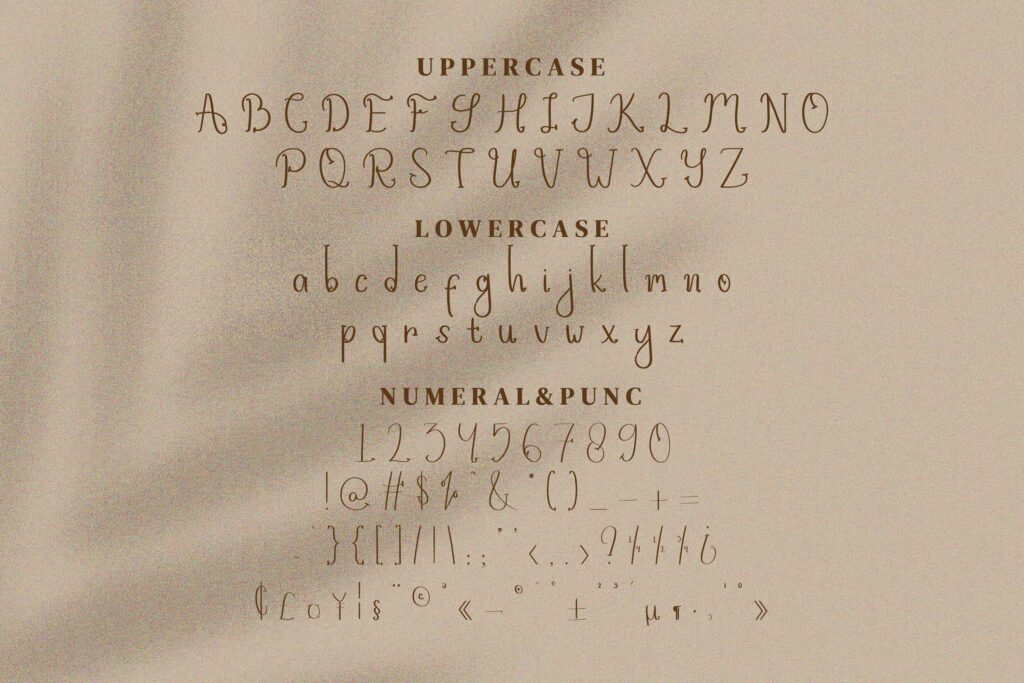 UPPERCASE
A B C D E F G H I J K L M N O
P Q R S T U V W X Y Z
LOWERCASE
a b c d e f g h i j k l m n o
p q r s t u v w x y z
NUMERAL&PUNC
1 2 3 4 5 6 7 8 9 0
! @ # $ % ^ & * ( ) _ – + =
- ` } { [ ] / | \ : ; " ' < , . > ? ¼ ½ ¾ ¿
¢ £ ¤ ¥ ¦ § ¨ © ª « ¬ ® ¯ ° ± ² ³ ´ µ ¶ · ¸ ¹ º »